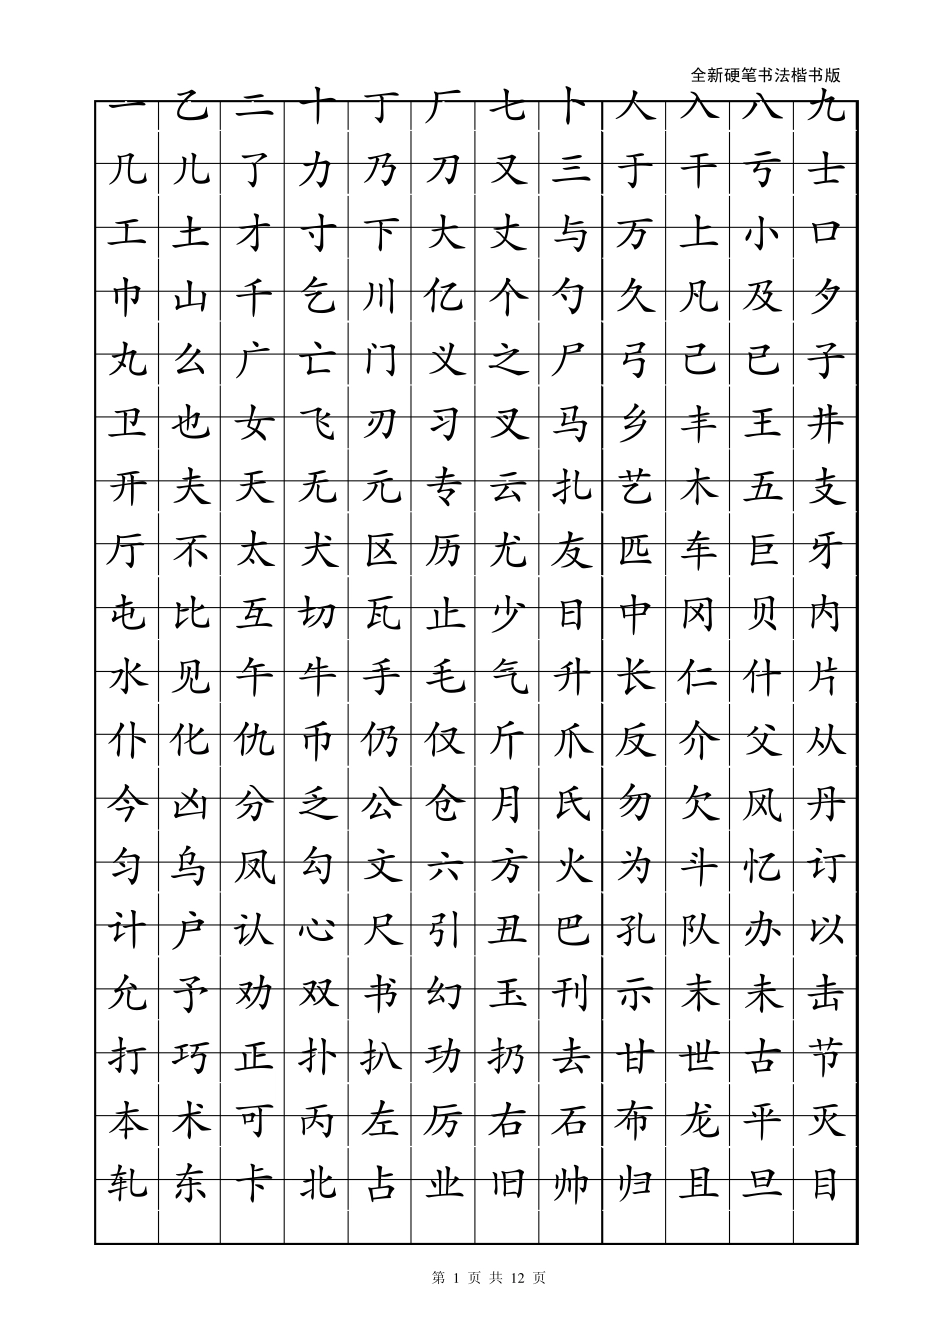 全新硬笔书法楷书版
一 乙 二 十 丁 厂 七 卜 人 入 八 九
几 儿 了 力 乃 刀 又 三 于 干 亏 士
工 土 才 寸 下 大 丈 与 万 上 小 口
巾 山 千 乞 川 亿 个 勺 久 凡 及 夕
丸 么 广 亡 门 义 之 尸 弓 己 已 子
卫 也 女 飞 刃 习 叉 马 乡 丰 王 井
开 夫 天 无 元 专 云 扎 艺 木 五 支
厅 不 太 犬 区 历 尤 友 匹 车 巨 牙
屯 比 互 切 瓦 止 少 日 中 冈 贝 内
水 见 午 牛 手 毛 气 升 长 仁 什 片
仆 化 仇 币 仍 仅 斤 爪 反 介 父 从
今 凶 分 乏 公 仓 月 氏 勿 欠 风 丹
匀 乌 凤 勾 文 六 方 火 为 斗 忆 订
计 户 认 心 尺 引 丑 巴 孔 队 办 以
允 予 劝 双 书 幻 玉 刊 示 末 未 击
打 巧 正 扑 扒 功 扔 去 甘 世 古 节
本 术 可 丙 左 厉 右 石 布 龙 平 灭
轧 东 卡 北 占 业 旧 帅 归 且 旦 目
第 1 页 共 12 页